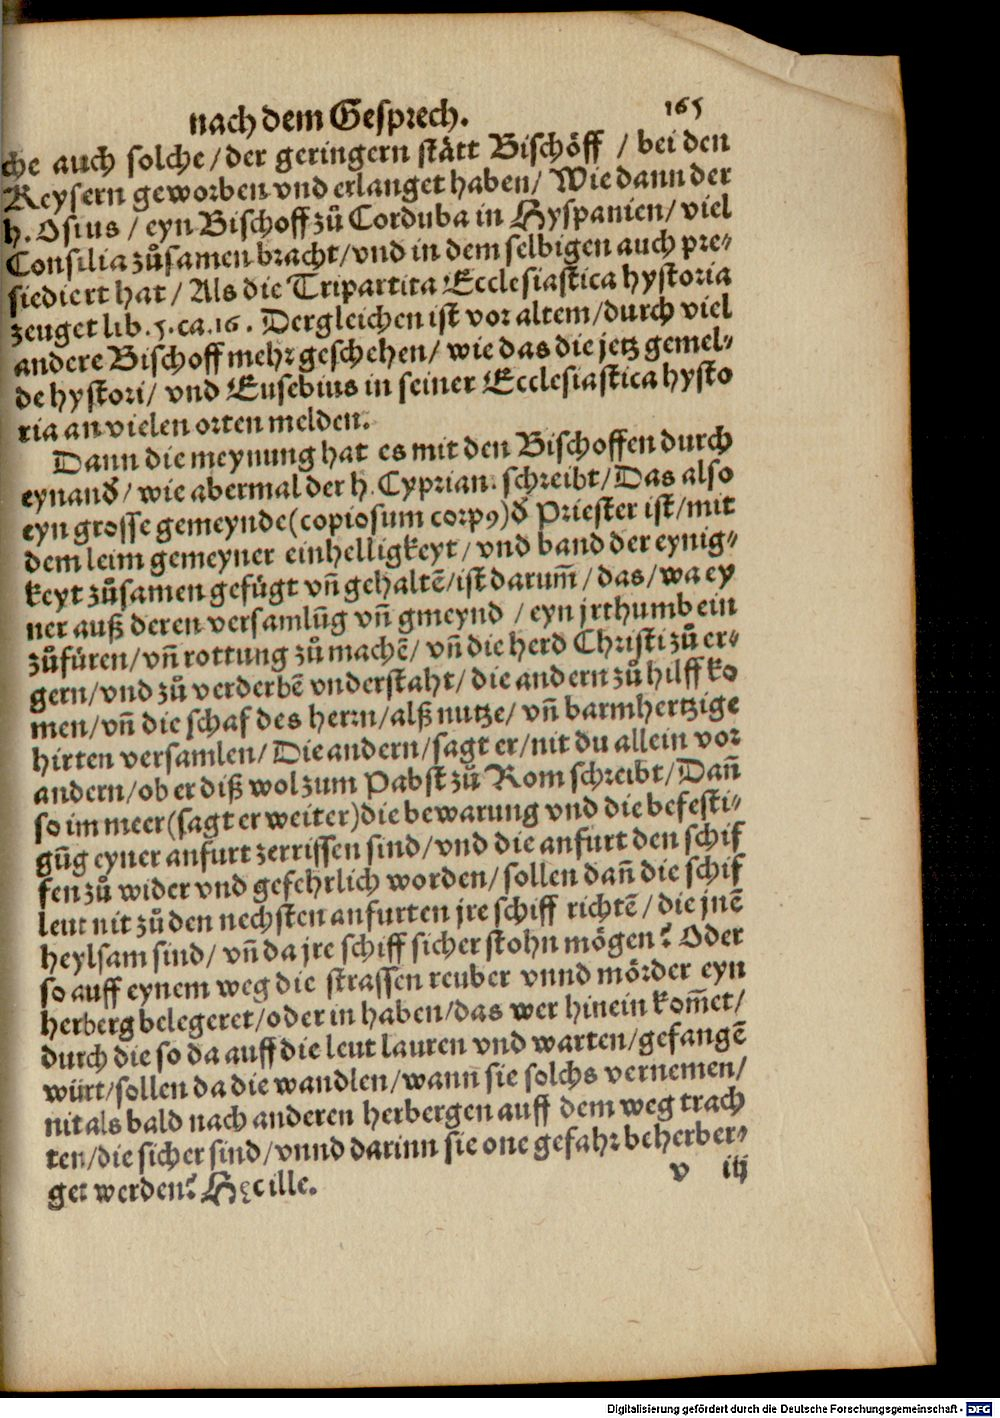 nach dem Gesprech. 165
che auch solche / der geringern stått Bischöff / bei den
Keysern geworben vnd erlanget haben / Wie dann der
h. Osius / eyn Bischoff zů Corduba in Hyspanien / viel
Consilia zůsamen bracht / vnd in dem selbigen auch pre⸗
siediert hat / Als die Tripartita Ecclesiastica hystoria
zeuget lib. 5. ca. 16. Dergleichen ist vor altem / durch viel
andere Bischoff mehr geschehen / wie das die jetz gemel⸗
de hystori / vnd Eusebius in seiner Ecclesiastica hysto
ria an vielen orten melden.
Dann die meynung hat es mit den Bischoffen durch
eynand̕ / wie abermal der h. Cyprian. schreibt / Das also
eyn grosse gemeynde (copiosum corpꝰ) d̕ Priester ist / mit
dem leim gemeyner einhelligkeyt / vnd band der eynig⸗
keyt zůsamen gefügt vn̄ gehaltē / ist darum̄ / das / wa ey
ner auß deren versamlūg vn̄ gmeynd / eyn jrthumb ein
zůfüren / vn̄ rottung zů machē / vn̄ die herd Christi zů er⸗
gern / vnd zů verderbē vnderstaht / die andern zů hilff ko
men / vn̄ die schaf des herrn / alß nutze / vn̄ barmhertzige
hirten versamlen / Die andern / sagt er / nit du allein vor
andern / ob er diß wol zum Pabst zů Rom schreibt / Dan̄
so im meer (sagt er weiter) die bewarung vnd die befesti⸗
gūg eyner anfurt zerrissen sind / vnd die anfurt den schif
fen zů wider vnd gefehrlich worden / sollen dan̄ die schif
leut nit zů den nechsten anfurten jre schiff richtē / die jnē
heylsam sind / vn̄ da jre schiff sicher stohn mögen? Oder
so auff eynem weg die strassen reuber vnnd mörder eyn
herberg belegeret / oder in haben / das wer hinein kom̄et /
durch die so da auff die leut lauren vnd warten / gefangē
würt / sollen da die wandlen / wann sie solchs vernemen /
nit als bald nach anderen herbergen auff dem weg trach
ten / die sicher sind / vnnd darinn sie one gefahr beherber⸗
get werden? Hęc ille.
v iij
Digitalisierung gefördert durch die Deutsche Forschungsgemeinschaft - DFG